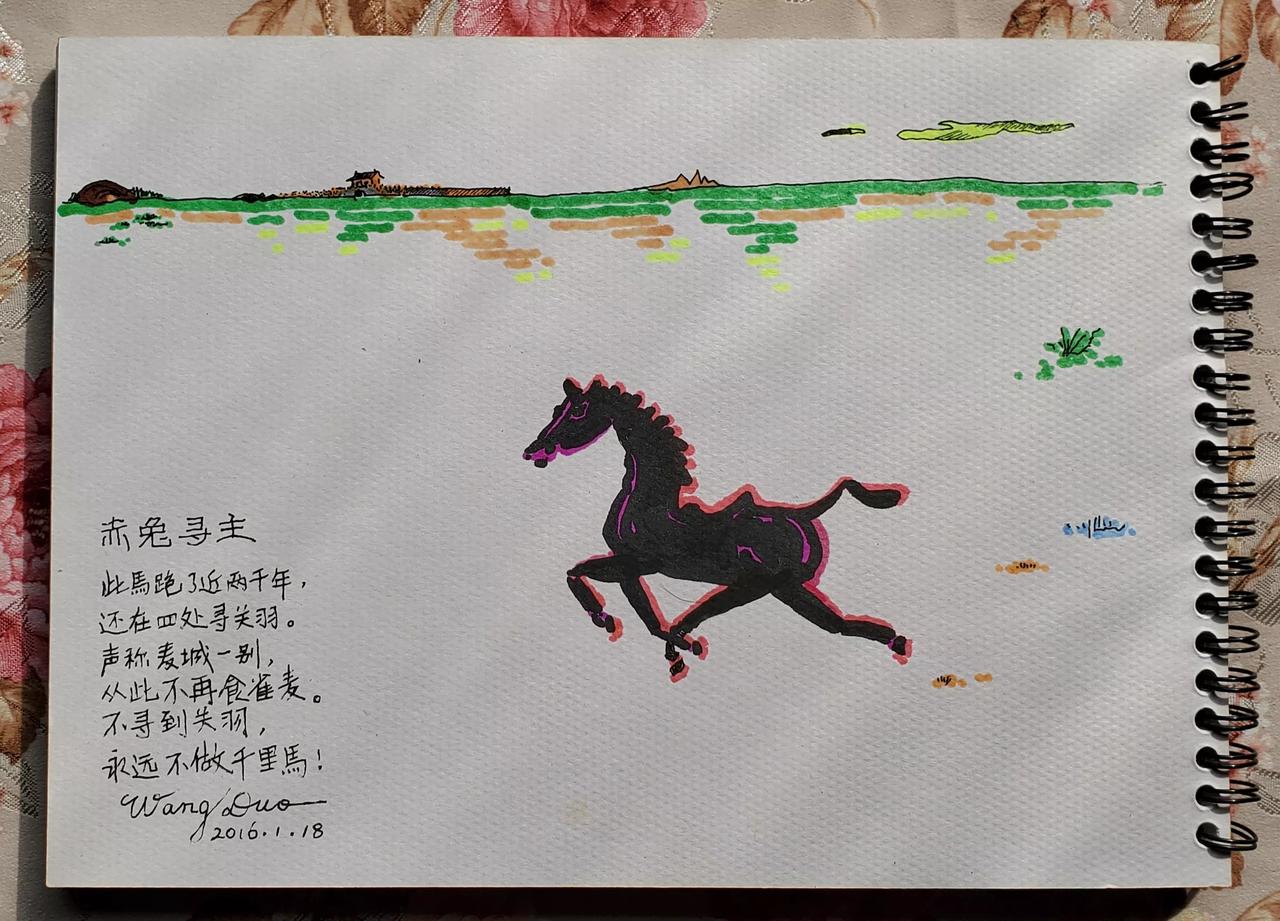 赤兔寻主
此馬跑了近两千年，
还在四处寻关羽。
声称麦城一别，
从此不再食雀麦。
不寻到关羽，
永远不做千里馬！
Wang Duo
2016.1.18